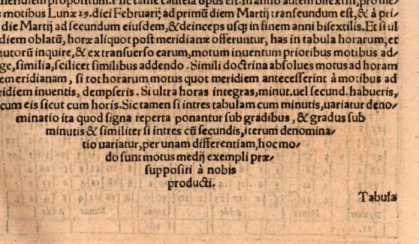 propositum. hac tamen cautela opus est. in anno autem bisextili,
e motibus Lunæ 29. diei Februarij ad primũ diem Martij transeundum est, & à pri⸗
die Martij ad secundum eiusdem, & deinceps usq; in finem anni bisextilis. Et si ul
diem oblatũ, horæ aliquot post meridianæ offeruntur, has in tabula horarum, et
autorũ inquire, & ex transuerso earum, motum inuentum prioribus motibus ad⸗
ge, similia, scilicet similibus addendo. Simili doctrina absolues motus ad horam
emeridianam, si tot horarum motus quot meridiem antecesserint à motibus ad
ridiem inuentis, dempseris. Si ultra horas integras, minut. uel secund. habueris,
cum eis sicut cum horis. Sic tamen si intres tabulam cum minutis, uariatur deno⸗
minatio ita quod signa reperta ponantur sub gradibus, & gradus sub
minutis & similiter si intres cũ secundis, iterum denomina⸗
tio uariatur, per unam differentiam, hoc mo⸗
do sunt motus medij exempli præ⸗
suppositi à nobis
producti.
Tabula